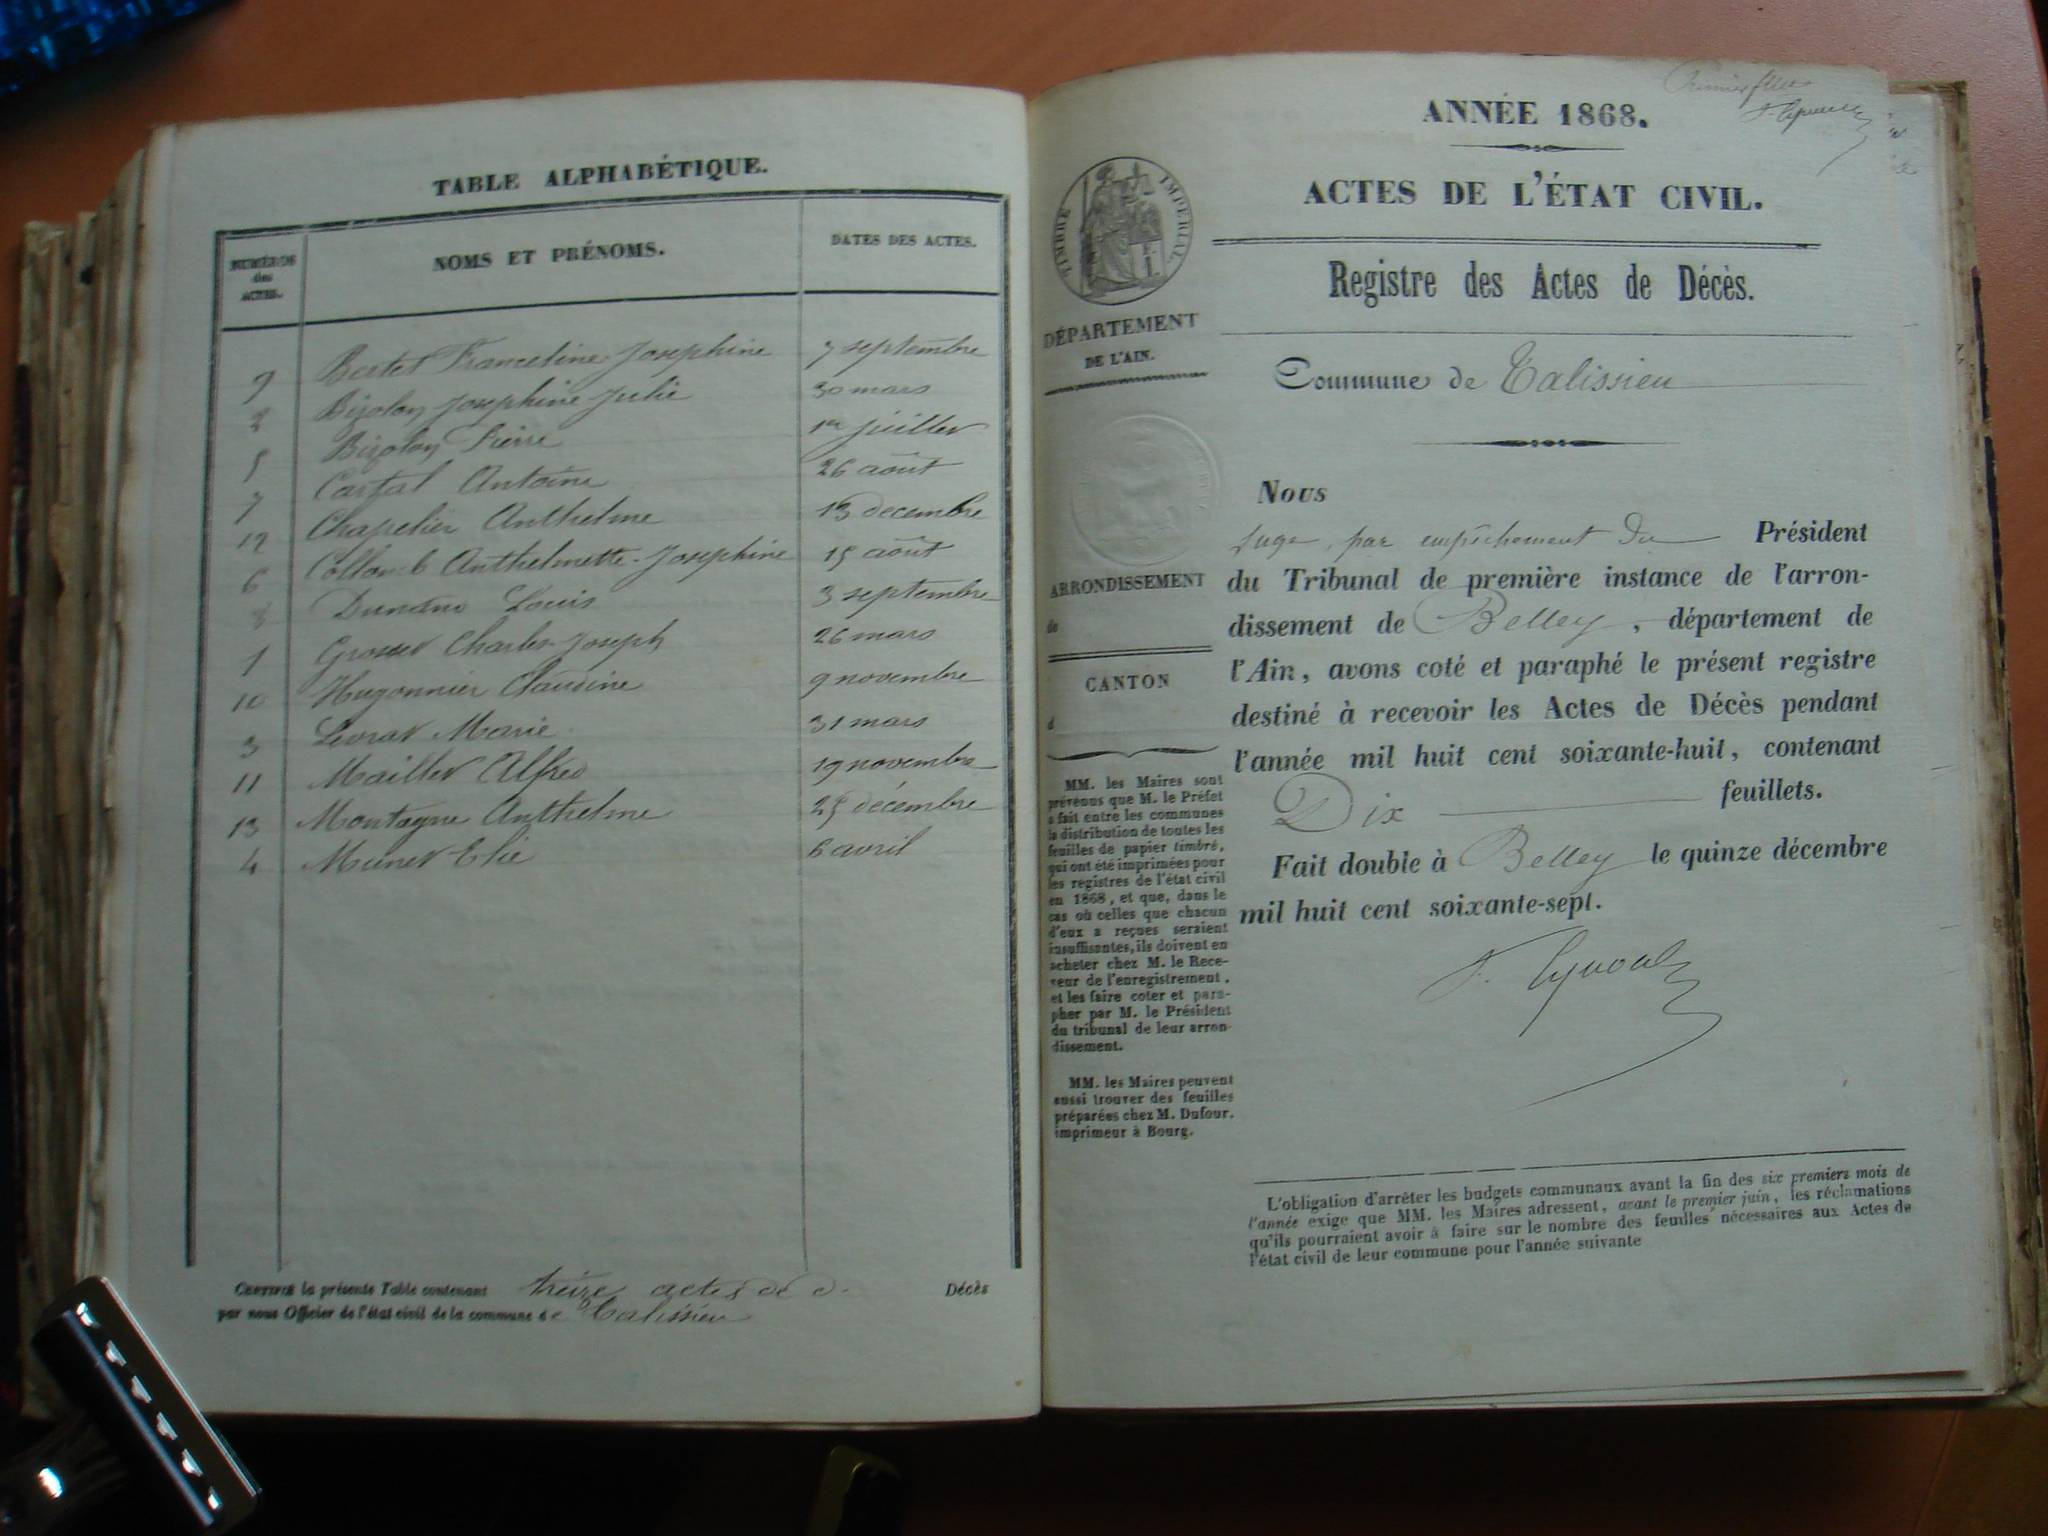 TABLE ALPHABÉTIQUE.
NUMÉROS
des
ACTES.
NOMS ET PRÉNOMS.
DATES DES ACTES.
9 Bertet Franceline Josephine 7 septembre
2 Bizolon Josephine Julie 30 mars
5 Bizolon Pierre 1er juillet
7 Antoine 26 août
12 Chapelier Anthelme 13 decembre
6 Collomb Anthelmette-Josephine 15 août
8 Dunand Louis 3 septembre
1 Charles-Joseph 26 mars
10 Hugonnier Claudine 9 novembre
3 Livrat Marie 31 mars
11 Maillet Alfred 19 novembre
13 Montagne Anthelme 25 décembre
4 Munet Elie 6 avril
CERTIFIÉ la présente Table contenant treize actes de d. Décès
par nous Officier de l'état civil de la commune de Talissieu
Premier
ANNÉE 1868.
ACTES DE L'ÉTAT CIVIL.
Registre des Actes de Décès.
TIMBRE IMPERIAL
DÉPARTEMENT
DE L'AIN.
ARRONDISSEMENT
de
CANTON
d
MM. les Maires sont
prévenus que M. le Préfet
a fait entre les communes
la distribution de toutes les
feuilles de papier timbré,
qui ont été imprimées pour
les registres de l'état civil
en 1868, et que, dans le
cas où celles que chacun
d'eux a reçues seraient
insuffisantes, ils doivent en
acheter chez M. le Rece-
veur de l'enregistrement,
et les faire coter et para-
pher par M. le Président
du tribunal de leur arron-
dissement.
MM. les Maires peuvent
aussi trouver des feuilles
préparées chez M. Dufour,
imprimeur à Bourg.
Commune de Talissieu
Nous
juge, par empêchement du Président
du Tribunal de première instance de l'arron-
dissement de Belley, département de
l'Ain, avons coté et paraphé le présent registre
destiné à recevoir les Actes de Décès pendant
l'année mil huit cent soixante-huit, contenant
Dix feuillets.
Fait double à Belley le quinze décembre
mil huit cent soixante-sept.
L'obligation d'arrêter les budgets communaux avant la fin des six premiers mois de
l'année exige que MM. les Maires adressent, avant le premier juin, les réclamations
qu'ils pourraient avoir à faire sur le nombre des feuilles nécessaires aux Actes de
l'état civil de leur commune pour l'année suivante